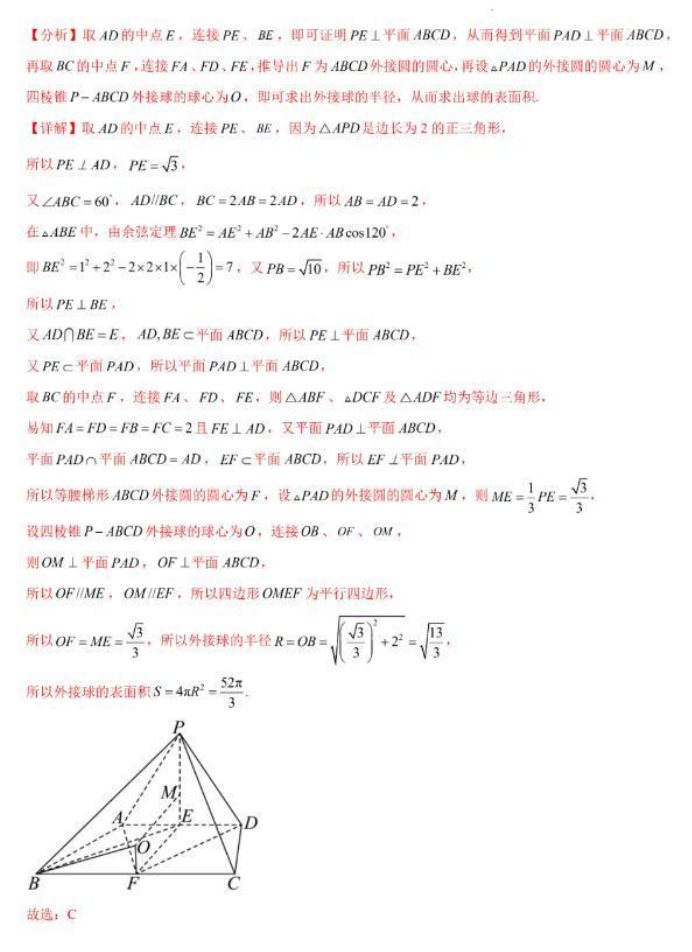 【分析】取 AD 的中点 E，连接 PE、 BE，即可证明 PE⊥平面 ABCD，从而得到平面 PAD⊥平面 ABCD，
再取 BC 的中点 F,连接 FA、FD、FE,推导出 F 为 ABCD 外接圆的圆心,再设△PAD 的外接圆的圆心为 M，
四棱锥 P－ABCD 外接球的球心为 O，即可求出外接球的半径，从而求出球的表面积.
【详解】取 AD 的中点 E，连接 PE、 BE，因为 △APD 是边长为 2 的正三角形，
所以 PE⊥AD， PE=√3，
又∠ABC=60°， AD//BC， BC=2AB=2AD，所以 AB=AD=2，
在△ABE 中，由余弦定理 BE²=AE²+AB²−2AE·AB cos120°，
即 BE²=1²+2²−2×2×1×(−1/2)=7，又 PB=√10，所以 PB²=PE²+BE²，
所以 PE⊥BE，
又 AD∩BE=E， AD,BE⊂平面 ABCD，所以 PE⊥平面 ABCD，
又 PE⊂平面 PAD，所以平面 PAD⊥平面 ABCD，
取 BC 的中点 F，连接 FA、 FD、 FE，则 △ABF 、 △DCF 及 △ADF 均为等边三角形，
易知 FA=FD=FB=FC=2 且 FE⊥AD，又平面 PAD⊥平面 ABCD，
平面 PAD∩平面 ABCD=AD， EF⊂平面 ABCD，所以 EF⊥平面 PAD，
所以等腰梯形 ABCD 外接圆的圆心为 F，设△PAD 的外接圆的圆心为 M，则 ME=1/3PE=√3/3，
设四棱锥 P−ABCD 外接球的球心为 O，连接 OB、 OF、 OM，
则 OM⊥平面 PAD， OF⊥平面 ABCD，
所以 OF//ME， OM//EF，所以四边形 OMEF 为平行四边形，
所以 OF=ME=√3/3，所以外接球的半径 R=OB=√((√3/3)²+2²)=√(13/3)，
所以外接球的表面积 S=4πR²=52π/3.
P
M
A E D
O
B F C
故选：C